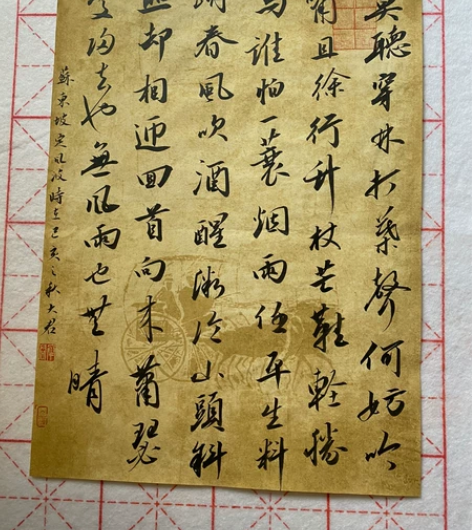 莫聽穿林打葉聲何妨吟
嘯且徐行竹杖芒鞋輕勝
馬誰怕一蓑烟雨任平生料
峭春風吹酒醒微冷山頭斜
照却相迎回首向來蕭瑟
處歸去也無風雨也無晴
蘇東坡定風波時在己亥之秋大